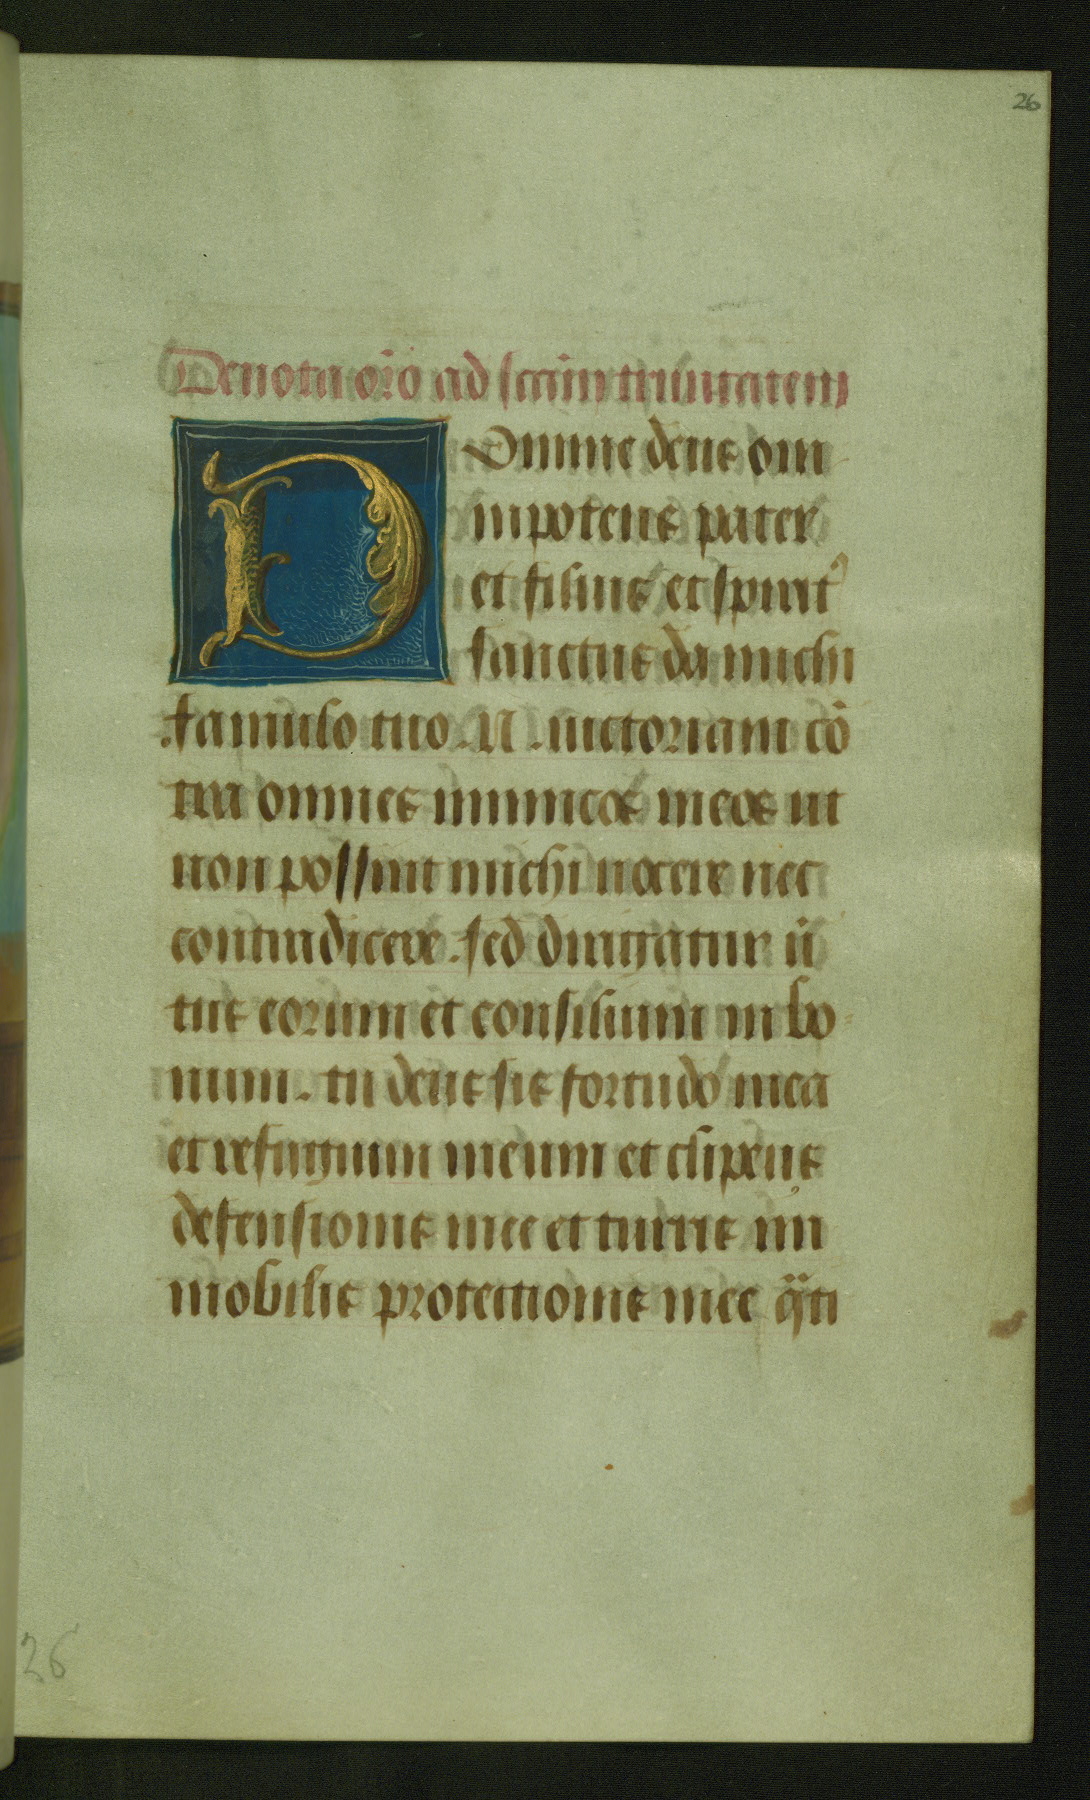 26
Deuota or̄o ad sc̄am trinitatem
Domine deus om
nipotens pater
et filius et spirit᾽
sanctus da michi
famulo tuo .N. uictoriam cō
tra omnes inimicos meos ut
non possint michi nocere nec
contradicere . sed dirigatur ū
tus eorum et consilium in bo
num. tu deus sis fortitudo mea
et refugium meum et clipeus
defensionis mee et turris im
mobilis protectionis mee
26